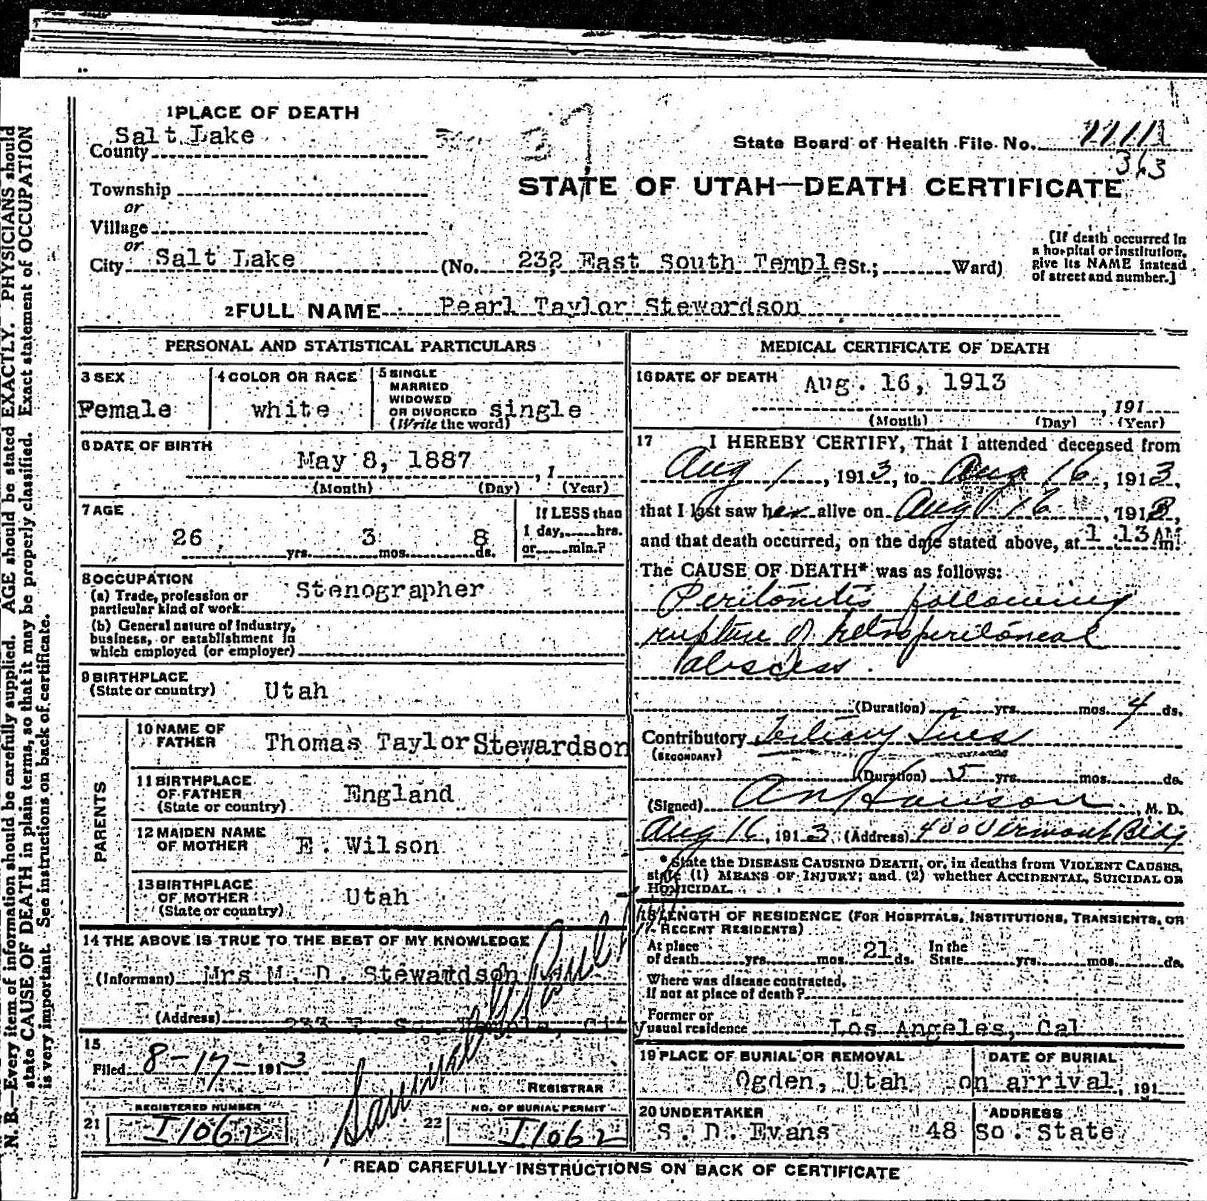 N. B.—Every item of information should be carefully supplied. AGE should be stated EXACTLY. PHYSICIANS should
state CAUSE OF DEATH in plain terms, so that it may be properly classified. Exact statement of OCCUPATION
is very important. See instructions on back of certificate.
1 PLACE OF DEATH
County Salt Lake
37
State Board of Health File No.
363
Township
STATE OF UTAH—DEATH CERTIFICATE
or
Village
or
City Salt Lake (No. 232 East South Temple St.; Ward)
[If death occurred in
a hospital or institution,
give its NAME instead
of street and number.]
2 FULL NAME Pearl Taylor Stewardson
PERSONAL AND STATISTICAL PARTICULARS
3 SEX Female
4 COLOR OR RACE white
5 SINGLE
MARRIED
WIDOWED
OR DIVORCED single
(Write the word)
6 DATE OF BIRTH
May 8, 1887, 1
(Month) (Day) (Year)
7 AGE
26 yrs. 3 mos. 8 ds.
If LESS than
1 day, hrs.
or min.?
8 OCCUPATION
(a) Trade, profession or
particular kind of work Stenographer
(b) General nature of industry,
business, or establishment in
which employed (or employer)
9 BIRTHPLACE
(State or country) Utah
PARENTS
10 NAME OF
FATHER Thomas Taylor Stewardson
11 BIRTHPLACE
OF FATHER
(State or country) England
12 MAIDEN NAME
OF MOTHER E. Wilson
13 BIRTHPLACE
OF MOTHER
(State or country) Utah
14 THE ABOVE IS TRUE TO THE BEST OF MY KNOWLEDGE
(Informant) Mrs M. D. Stewardson
(Address) City
15
Filed 8-17-1913
REGISTRAR
REGISTERED NUMBER
21 I1062
NO. OF BURIAL PERMIT
22 I1062
MEDICAL CERTIFICATE OF DEATH
16 DATE OF DEATH Aug. 16, 1913
, 191
(Month) (Day) (Year)
17 I HEREBY CERTIFY, That I attended deceased from
Aug 1, 1913, to Aug 16, 1913,
that I last saw her alive on Aug 16, 1913,
and that death occurred, on the date stated above, at 1 13 AM m.
The CAUSE OF DEATH* was as follows:
Peritonitis following
rupture of retroperitoneal
abscess.
(Duration) yrs. mos. 4 ds.
Contributory Tertiary Lues
(SECONDARY)
(Duration) 5 yrs. mos. ds.
(Signed) M. D.
Aug 16, 1913 (Address) 400 Vermont Bldg
* State the DISEASE CAUSING DEATH, or, in deaths from VIOLENT CAUSES,
state (1) MEANS OF INJURY; and (2) whether ACCIDENTAL, SUICIDAL OR
HOMICIDAL.
18 LENGTH OF RESIDENCE (FOR HOSPITALS, INSTITUTIONS, TRANSIENTS, OR
RECENT RESIDENTS)
At place
of death yrs. mos. 21 ds. In the
State yrs. mos. ds.
Where was disease contracted,
if not at place of death?
Former or
usual residence Los Angeles, Cal
19 PLACE OF BURIAL OR REMOVAL
Ogden, Utah
DATE OF BURIAL
on arrival, 191
20 UNDERTAKER
S. D. Evans
ADDRESS
48 So. State
READ CAREFULLY INSTRUCTIONS ON BACK OF CERTIFICATE